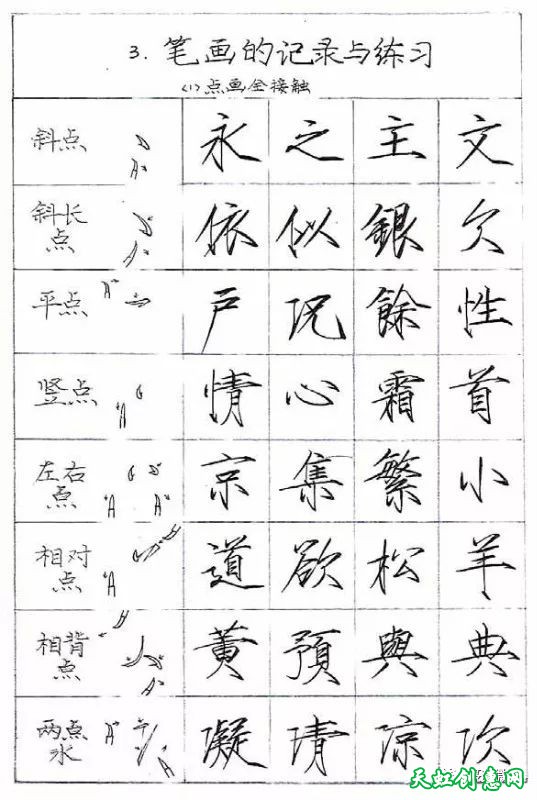 3. 笔画的记录与练习
(1)点画全接触
斜点 永 之 主 文
斜长
点 依 似 銀 欠
平点 户 况 餘 性
竖点 情 心 霜 首
左右
点 京 集 繁 小
相对
点 道 欲 松 羊
相背
点 黄 預 與 典
两点
水 凝 凊 凉 次
天虹创意网